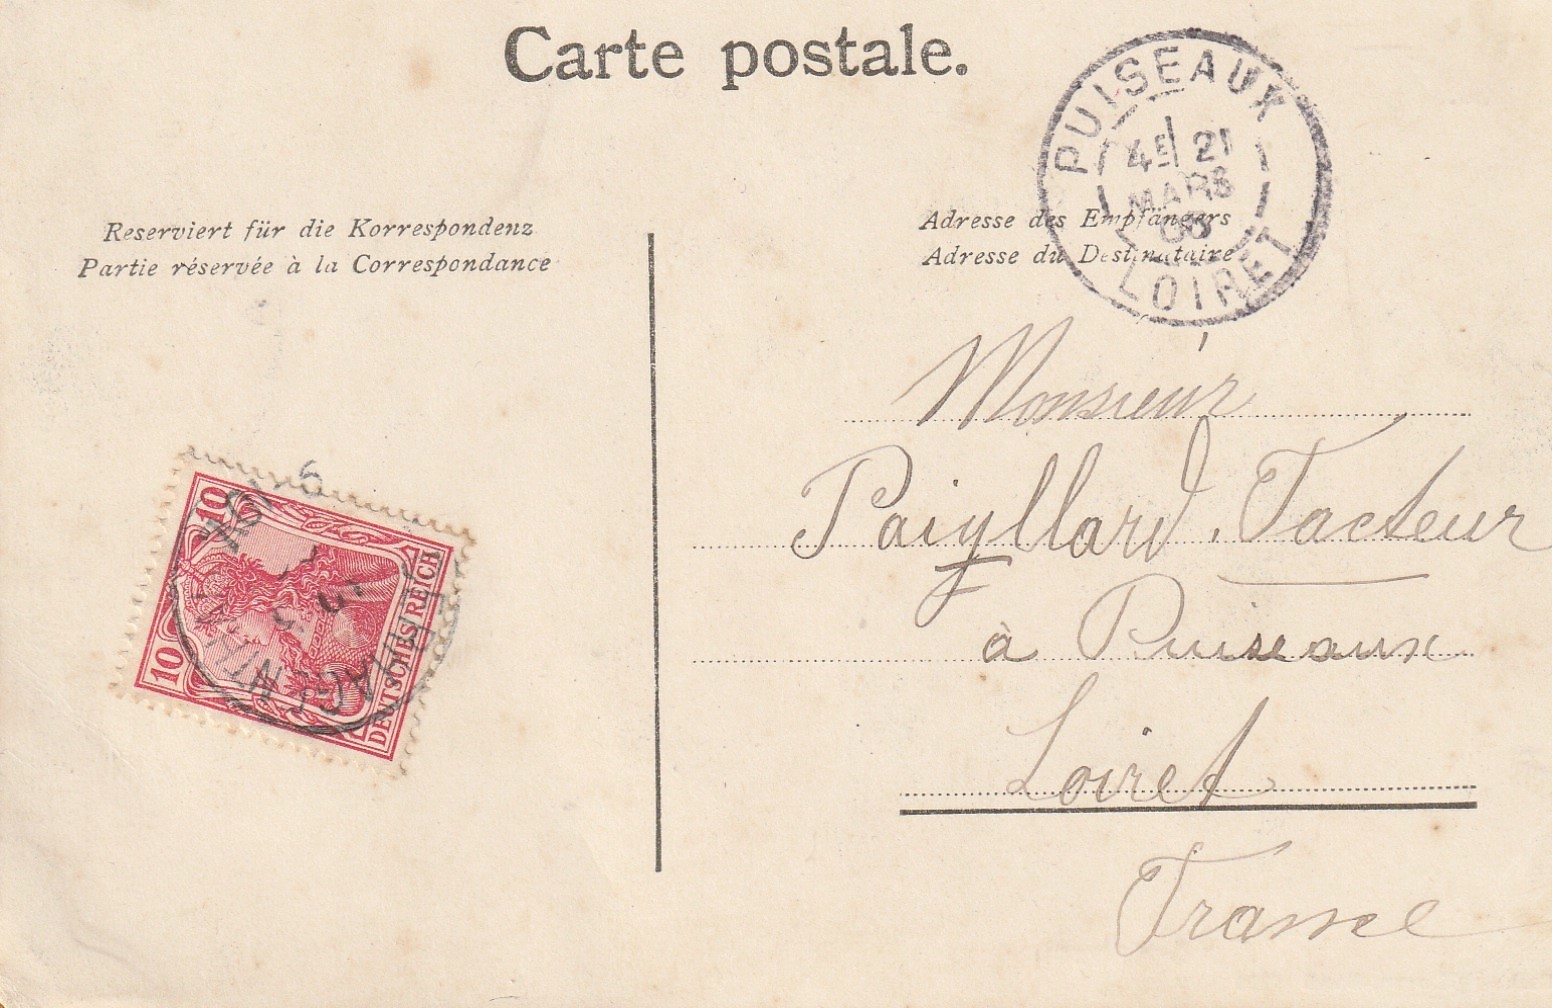 Carte postale.
PUISEAUX
4E 21
MARS
LOIRET
Reserviert für die Korrespondenz
Partie réservée à la Correspondance
Adresse des Empfängers
Adresse du Destinataire
Monsieur
Paiyllard, Facteur
à Puiseaux
Loiret
France
10
10
DEUTSCHES REICH